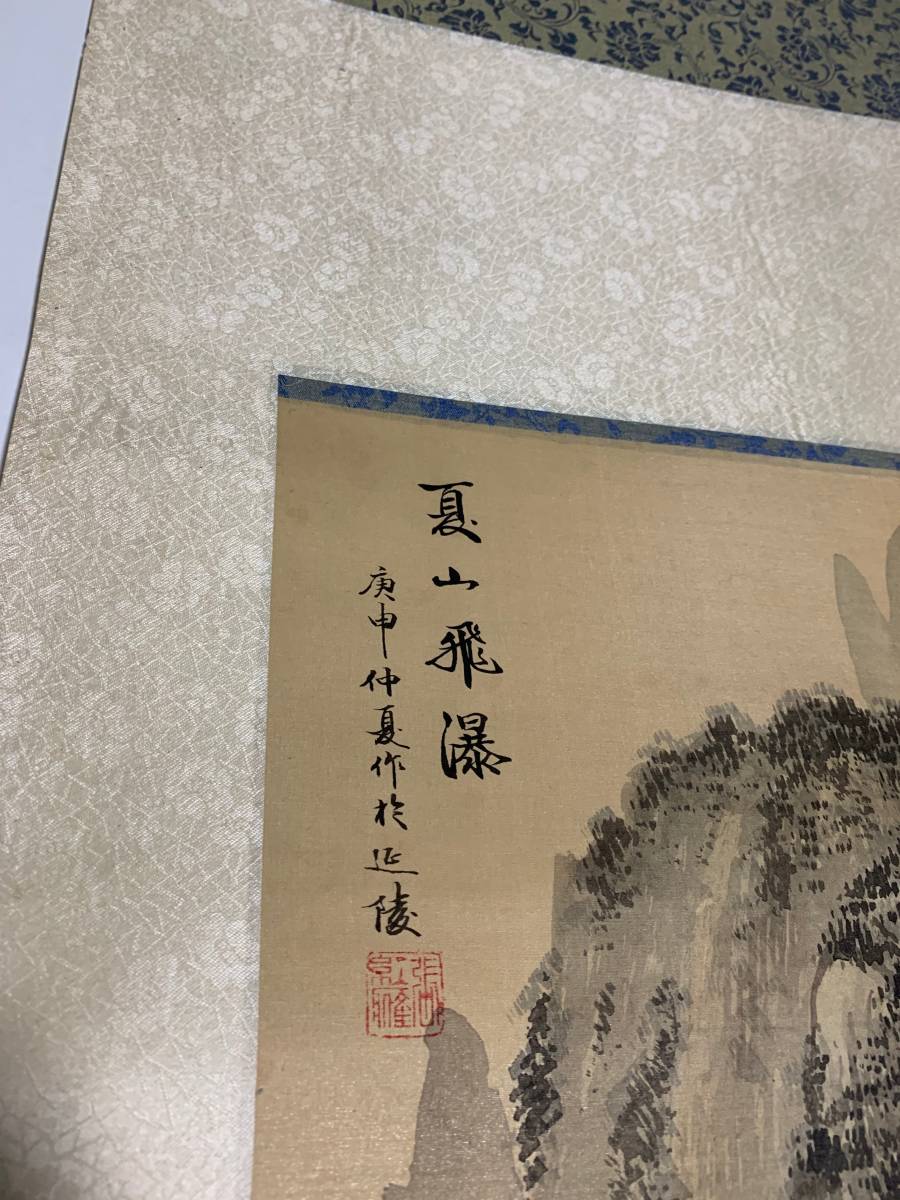 夏山飛瀑
庚申仲夏作於延陵